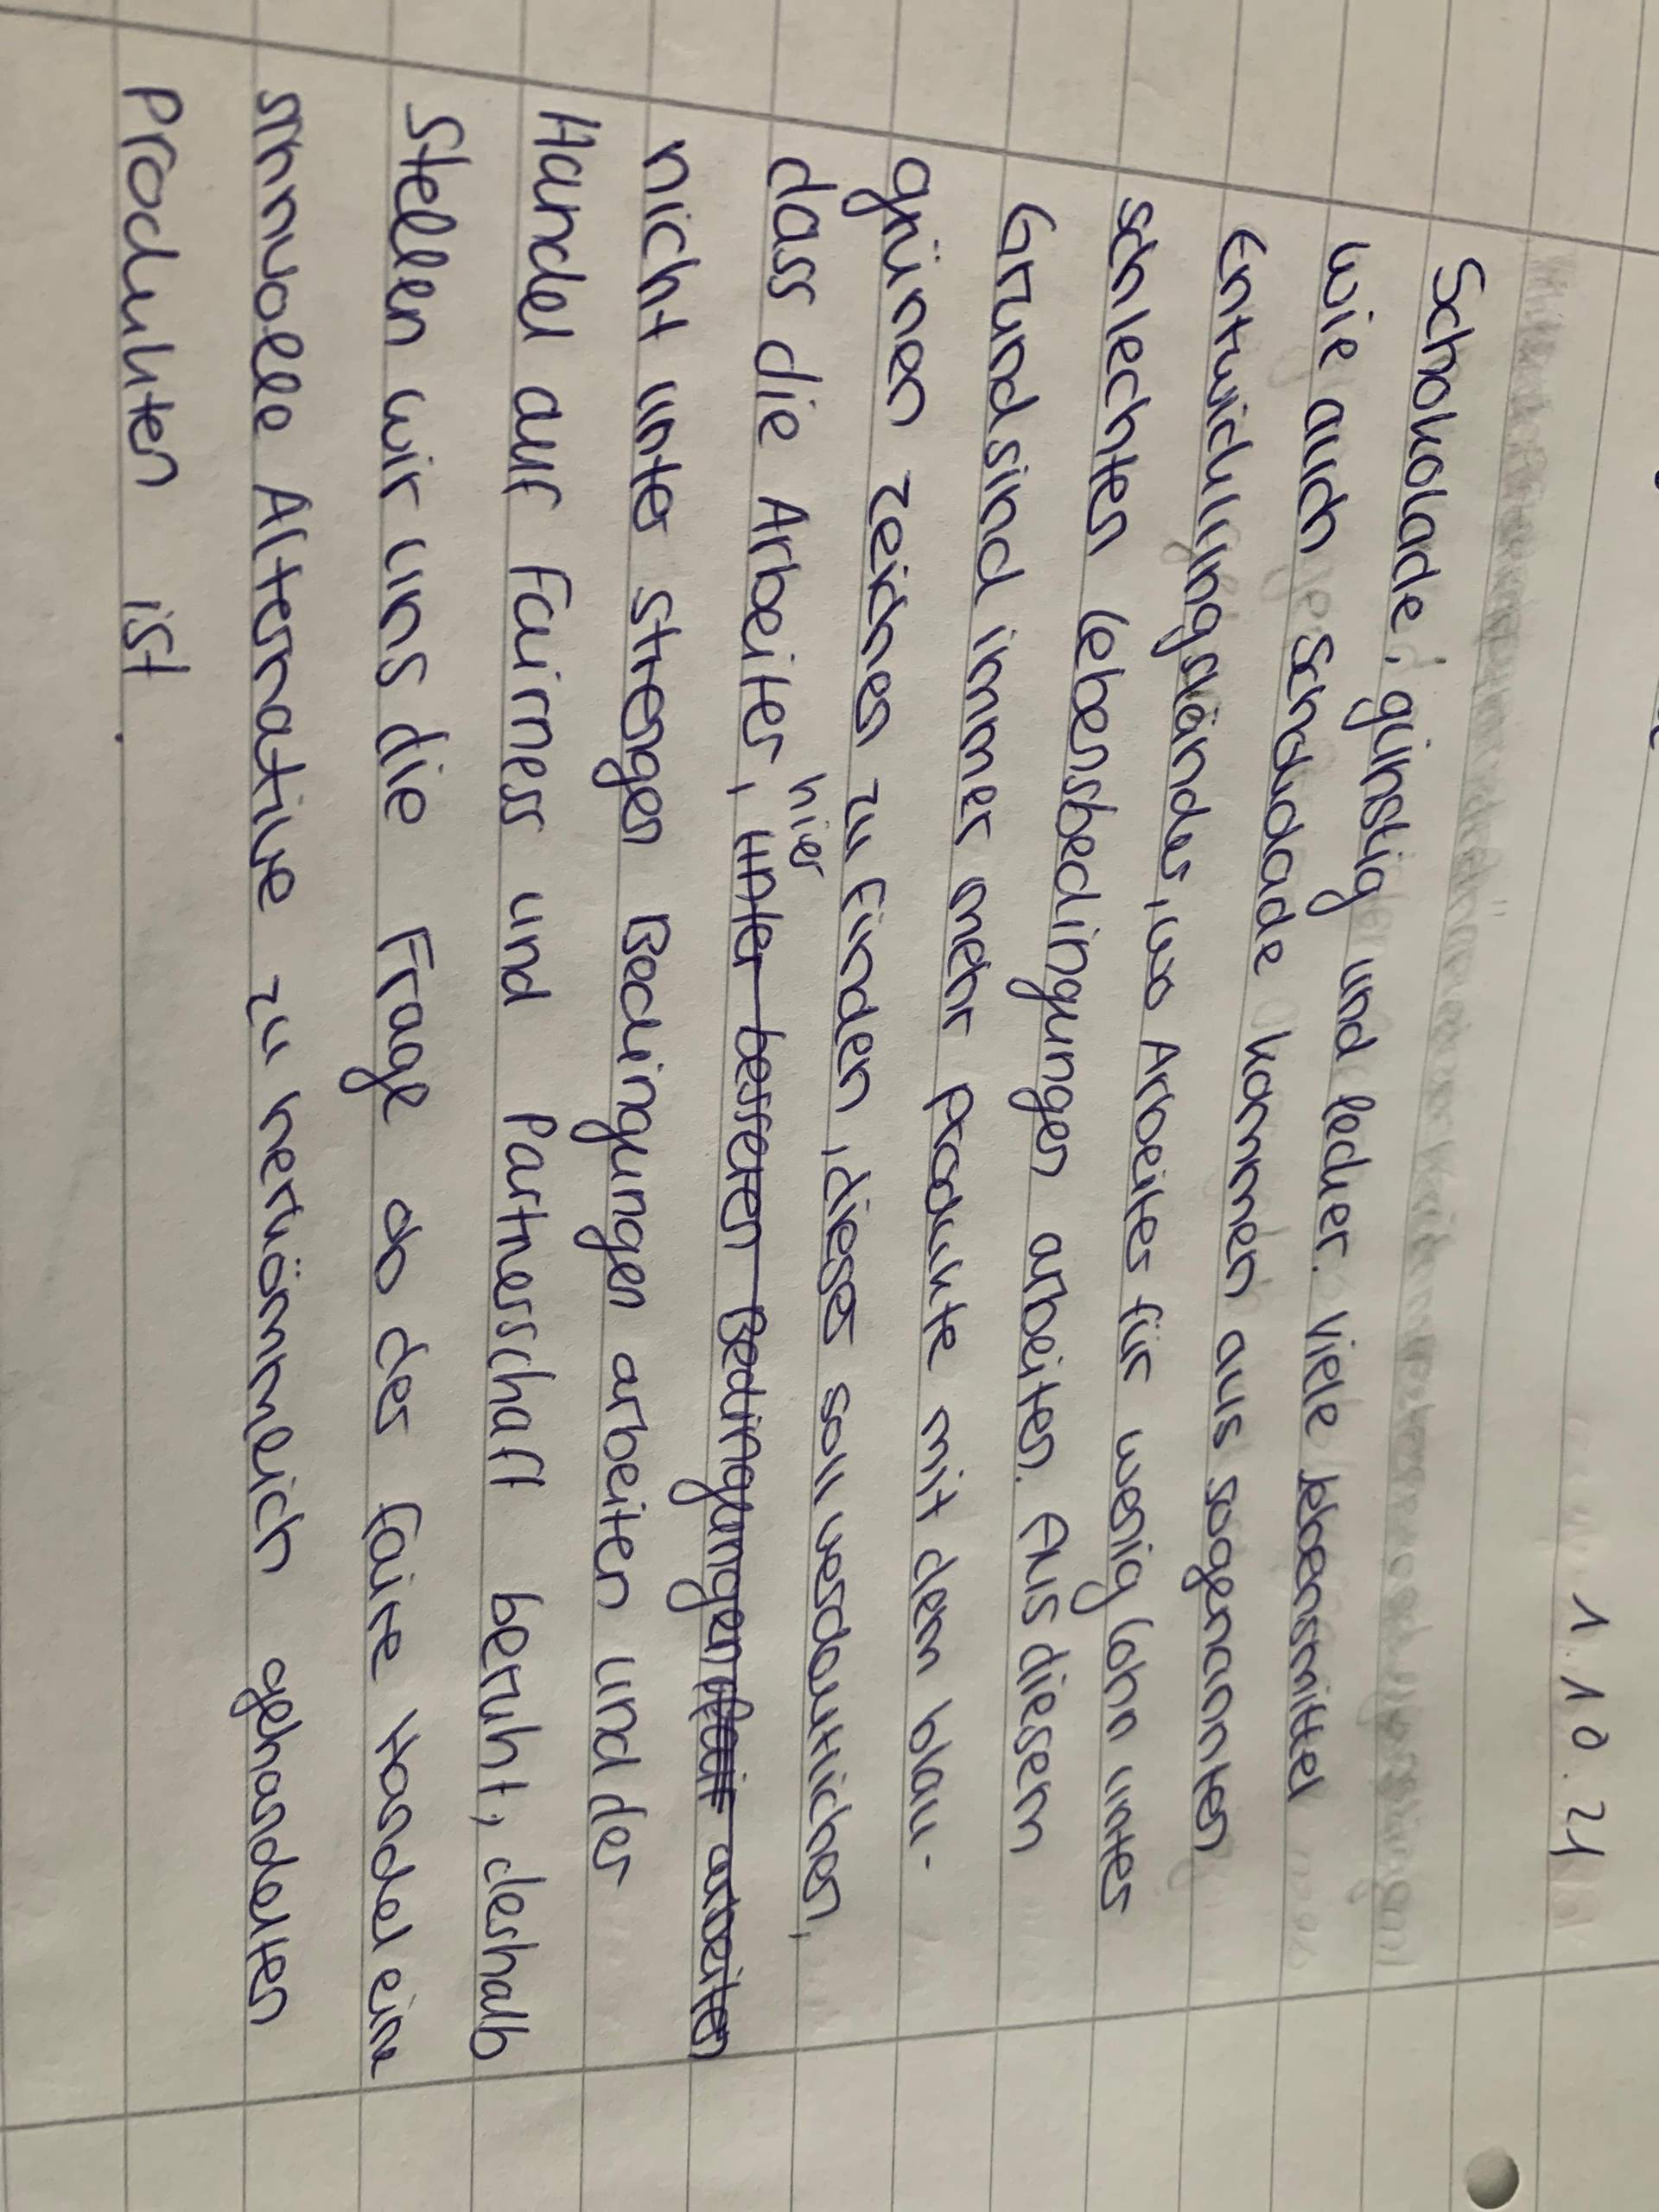 1.10.21
Schokolade, günstig und lecker. Viele lebensmittel
wie auch Schokolade kommen aus sogenannten
Entwicklungsländer, wo Arbeiter für wenig lohn unter
schlechten lebensbedingungen arbeiten. Aus diesem
Grund sind immer mehr Produkte mit dem blau-
grünen zeichen zu finden, dieses soll verdeutlichen,
dass die Arbeiter, hier unter besseren Bedingungen arbeiten
nicht unter strengen Bedingungen arbeiten und der
Handel auf Fairness und Partnerschaft beruht, deshalb
Stellen wir uns die Frage ob der faire Handel eine
sinnvolle Alternative zu herkömmleich gehandelten
Produkten ist.